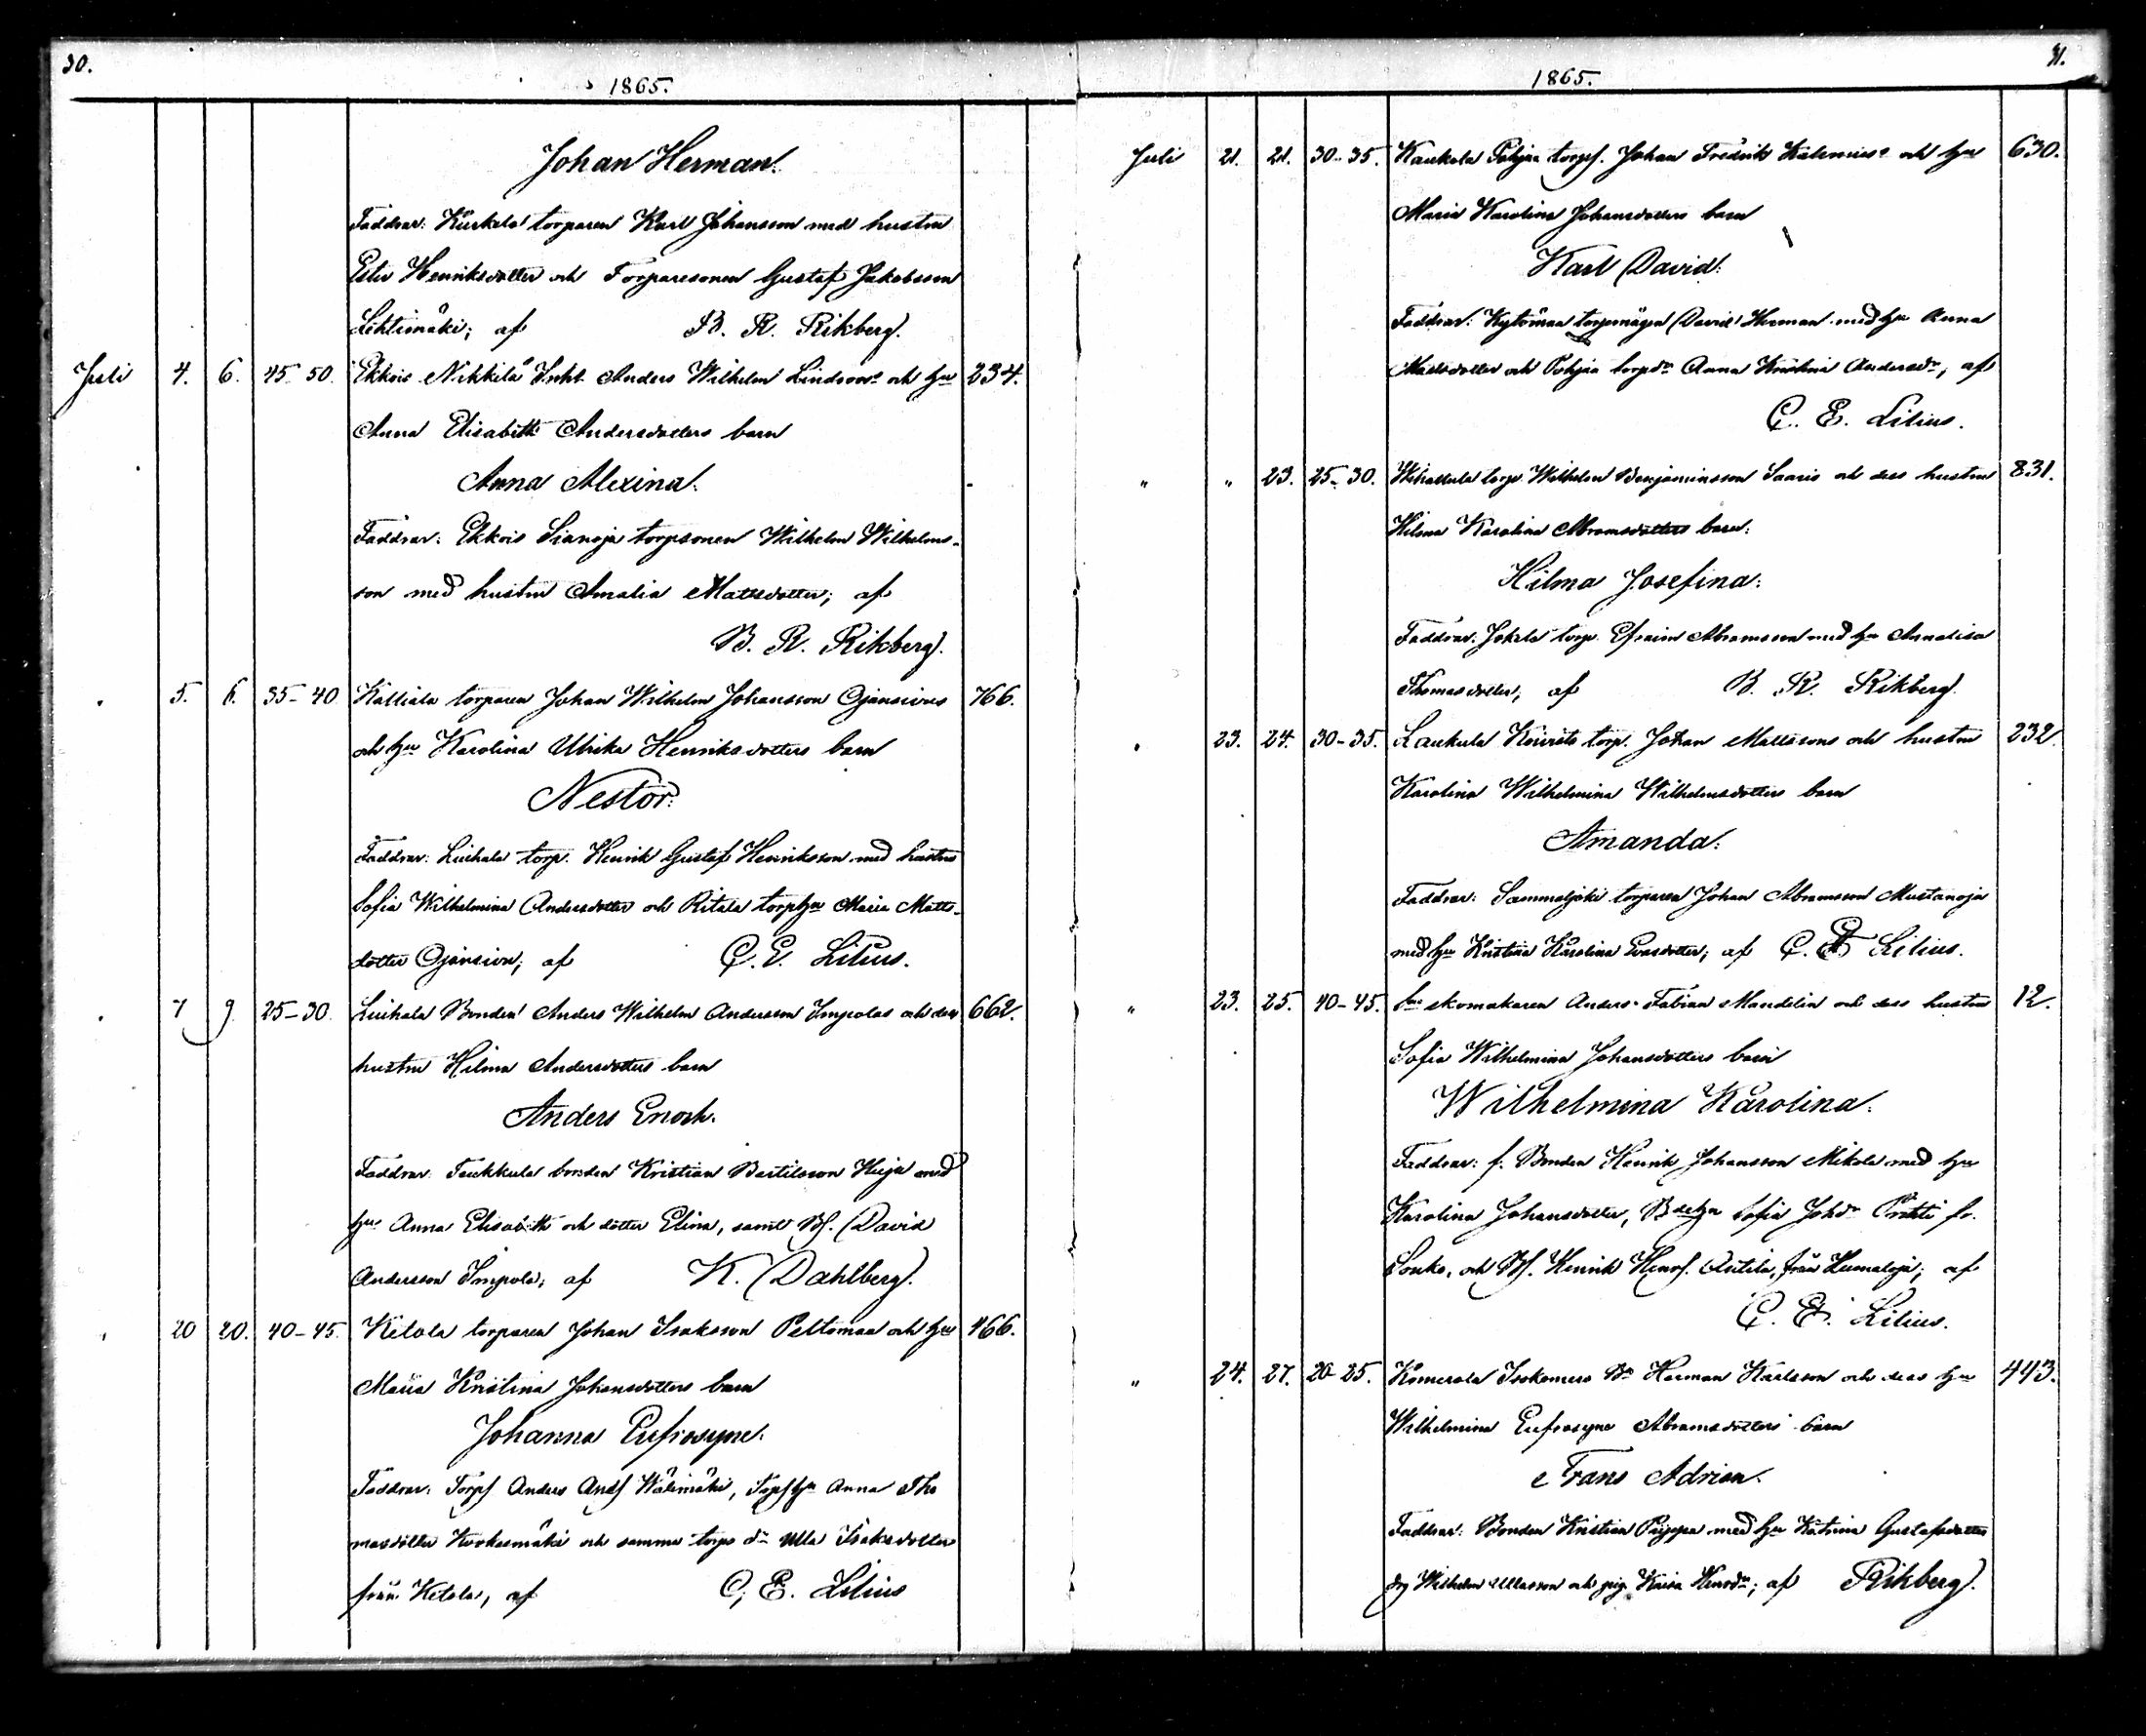 30.
1865.
Johan Herman.
Faddrar: Kuskela torparen Karl Johansson med hustru
Ester Henriksdotter och Torparesonen Gustaf Jakobsson
Lehtimäki; af B. R. Rikberg.
Juli 4. 6. 45-50. Ekkois Nikkilä Inht. Anders Wilhelm Lindroos och hu 234.
Anna Elisabeth Andersdotters barn
Anna Alexina.
Faddrar: Ekkois Sianoja torpsonen Wilhelm Wilhelms-
son med hustru Amalia Mattsdotter; af
B. R. Rikberg.
" 5. 6. 35-40. Kalliala torparen Johan Wilhelm Johansson Ojansivus 766.
och hu Karolina Ulrika Henriksdotters barn
Nestor.
Faddrar: Liuhala torp. Henrik Gustaf Henriksson med hustru
Sofia Wilhelmina Andersdotter och Ritala torphu Maria Matts-
dotter Ojansivu; af C. E. Lilius.
" 7 9. 25-30. Liuhala Bonden Anders Wilhelm Andersson Impolas och dess 662.
hustru Hilma Andersdotters barn
Anders Enoch.
Faddrar: Taukkula bonden Kristian Bertilsson Heja med
hu Anna Elisabeth och dotter Elina, samt Bs. David
Andersson Impola; af K. Dahlberg.
" 20 20. 40-45. Ketola torparen Johan Isaksson Peltomaa och hu 466.
Maria Kristina Johansdotters barn
Johanna Eufrosyne.
Faddrar: Torps Anders Ands Wälimäki, Torpshu Anna Tho
masdotter Koskesmäki och samma torps dr Ulla Isaksdotter
från Ketola, af C. E. Lilius
31.
1865.
Juli 21. 21. 30-35. Kaukola Pohjan torps. Johan Fredrik och hu 630.
Maria Karolina Johansdotters barn
Karl David.
Faddrar: Kytömaa torpemågen David Herman med hu Anna
Mattsdotter och Pohjan torpdr Anna Kristina Andersdr; af
C. E. Lilius.
" " 23. 25-30. torp. Wilhelm Benjaminsson Saaris och dess hustru 831.
Hilma Karolina Abramsdotters barn:
Hilma Josefina.
Faddrar: Jokela torp. Efraim Abramsson med hu Annalisa
Thomasdotter, af B. R. Rikberg.
" 23. 24. 30-35. Laukula Koivisto torp. Johan Mattssons och hustru 232.
Karolina Wilhelmina Wilhelmsdotters barn
Amanda.
Faddrar: Sammaljoki torparen Johan Abramsson Mustanoja
med hu Kristina Karolina Evasdotter; af C. E. Lilius.
" 23. 25. 40-45. skomakaren Anders Fabian Mandelin och dess hustru 12.
Sofia Wilhelmina Johansdotters barn
Wilhelmina Karolina.
Faddrar: f. Bonden Henrik Johansson Mikola med hu
Karolina Johansdotter, Sofia Johdr Prähti fr.
Sonko, och Bs. Henrik Henrs. Antila, från Humaloja; af
C. E. Lilius.
" 24. 27. 20-25. Komerola Isokomero Bn Herman Karlsson och dess hu 443.
Wilhelmina Eufrosyne Abramsdotters barn
Frans Adrian.
Faddrar: Bonden Kristian Pirppa med hu Katrina Gustafsdotter
drg Wilhelm Ullasson och pig. Kaisa Henrsdr; af Rikberg.